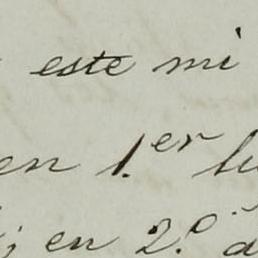 este mi
en 1.er lu
; en 2.º d